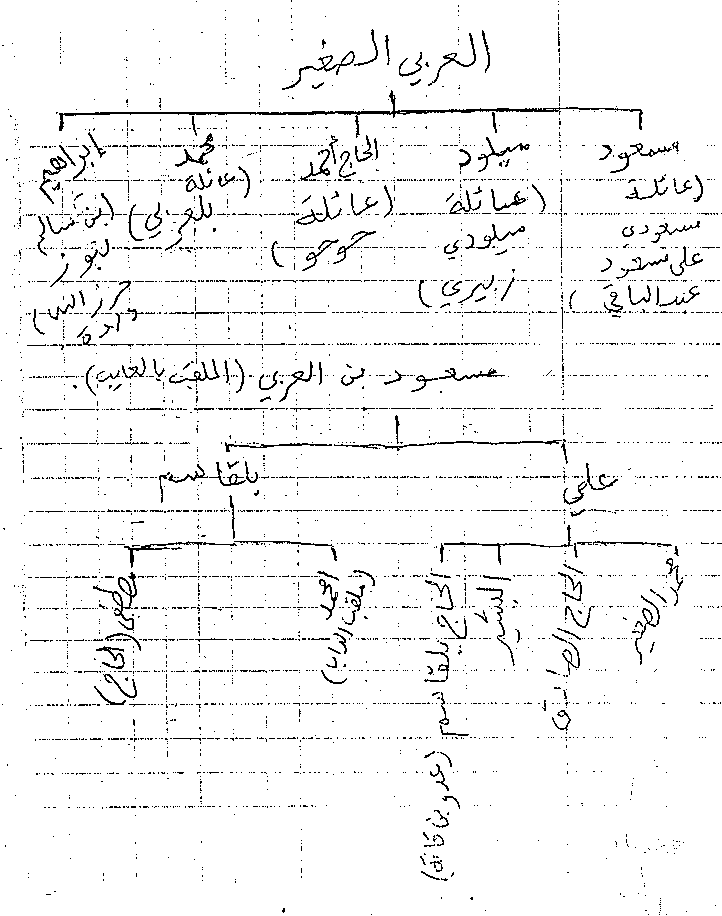 العربي الصغير
مسعود
(عائلة
مسعودي
علي مسعود
عبد الباقي)
ميلود
(عائلة
ميلودي
زبيري)
الحاج أحمد
(عائلة
حوحو)
محمد
(عائلة
بلعربي)
إبراهيم
(بن سالم
لبوز
حرز الله)
دادة
مسعود بن العربي (الملقب بالعايب).
علي
بلقاسم
محمد الصغير
الحاج الصادق
البشير
الحاج بلقاسم (عدو بن قانة)
احمد
(ملقب الداب)
مصطفى (الحاج)